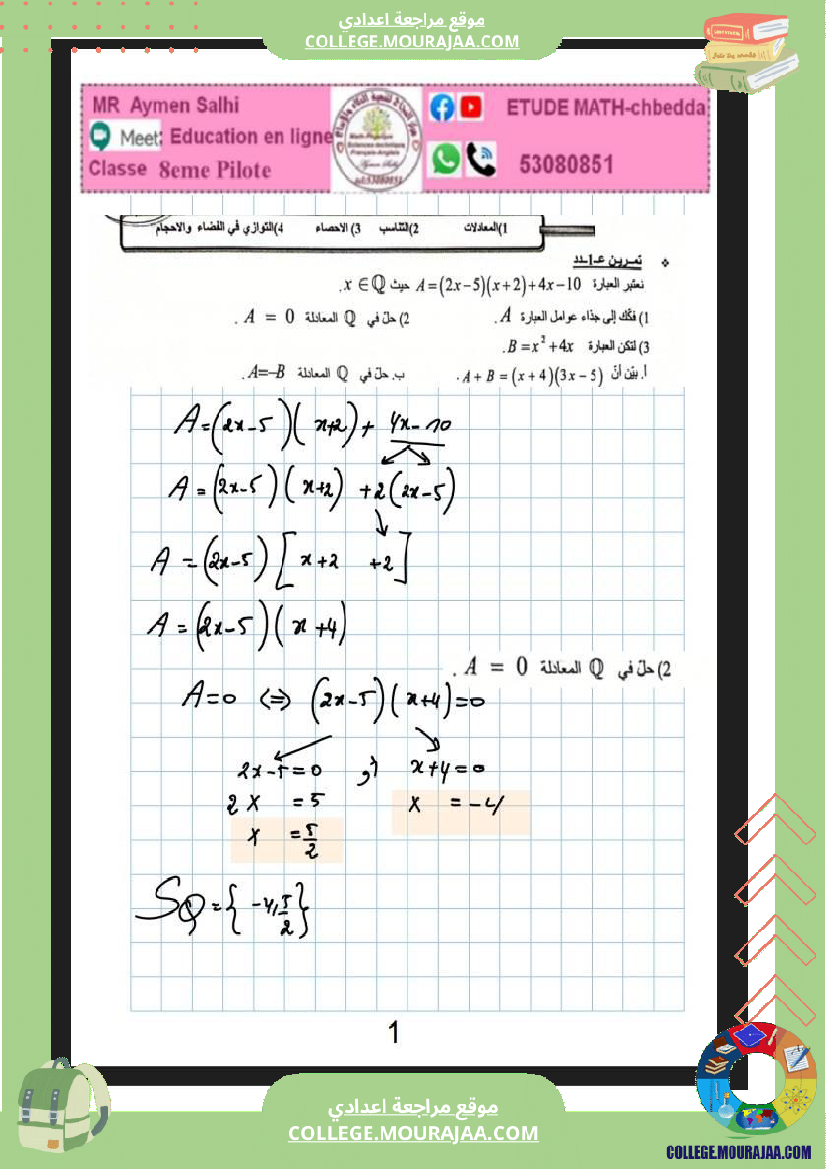 موقع مراجعة اعدادي
COLLEGE.MOURAJAA.COM
MR Aymen Salhi
Meet: Education en ligne
Classe 8eme Pilote
ETUDE MATH-chbedda
53080851
1)المعادلات 2)التناسب 3) الاحصاء 4)التوازي في الفضاء والاحجام
❖ تمرين عـ1ـدد
نعتبر العبارة A=(2x-5)(x+2)+4x-10 حيث x∈ℚ.
1) فكّك إلى جذاء عوامل العبارة A. 2) حلّ في ℚ المعادلة A = 0 .
3) لتكن العبارة B=x²+4x.
أ. بيّن أنّ A+B=(x+4)(3x-5). ب. حلّ في ℚ المعادلة A=-B.
A=(2x-5)(x+2)+ 4x-10
A=(2x-5)(x+2) +2(2x-5)
A=(2x-5)[x+2 +2]
A=(2x-5)(x+4)
2) حلّ في ℚ المعادلة A = 0 .
A=0 ⇔ (2x-5)(x+4)=0
2x-5=0 أو x+4=0
2x =5 x =-4
x =5/2
Sℚ={-4, 5/2}
1
موقع مراجعة اعدادي
COLLEGE.MOURAJAA.COM
COLLEGE.MOURAJAA.COM